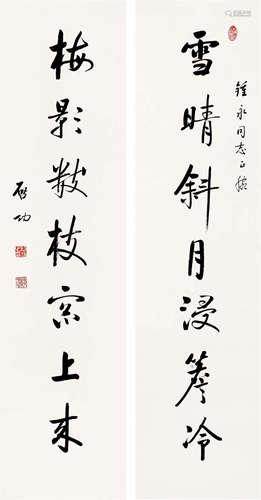 雪晴斜月浸簷冷
錘永同志正腕
梅影数枝窗上来
启功